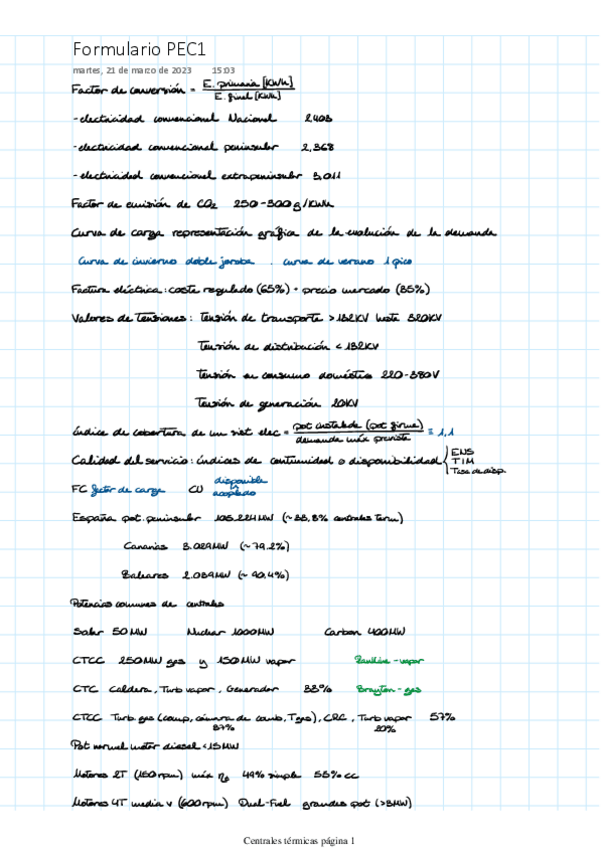 Formulario PEC1
martes, 21 de marzo de 2023 15:03
Factor de conversión = E. primaria [KWh] / E. final [KWh]
- electricidad convencional Nacional 2,403
- electricidad convencional peninsular 2,368
- electricidad convencional extrapeninsular 3,011
Factor de emisión de CO2 250-300 g/KWh
Curva de carga representación gráfica de la evolución de la demanda
Curva de invierno doble joroba . curva de verano 1 pico
Factura eléctrica: coste regulado (65%) + precio mercado (35%)
Valores de Tensiones: Tensión de transporte >132KV hasta 320KV
Tensión de distribución <132KV
Tensión en consumo doméstico 220-380V
Tensión de generación 20KV
índice de cobertura de un sist elec = pot instalada (pot firme) / demanda máx prevista = 1,1
Calidad del servicio: índices de continuidad o disponibilidad { ENS
TIM
Tasa de disp.
FC factor de carga CU disponible
acoplado
España pot. peninsular 105.221MW (~38,8% centrales term)
Canarias 3.029MW (~79.2%)
Baleares 2.089MW (~90,4%)
Potencias comunes de centrales
Solar 50MW Nuclear 1000MW Carbon 400MW
CTCC 250MW gas y 150MW vapor Rankine - vapor
CTC Caldera, Turb vapor, Generador 38% Brayton - gas
CTCC Turb. gas (comp, cámara de comb, T gas), CRC, Turb vapor 57%
37% 20%
Pot normal motor diesel <15MW
Motores 2T (150rpm) máx 49% simple 55% cc
Motores 4T media v (600rpm) Dual-Fuel grandes pot (>3MW)
Centrales térmicas página 1